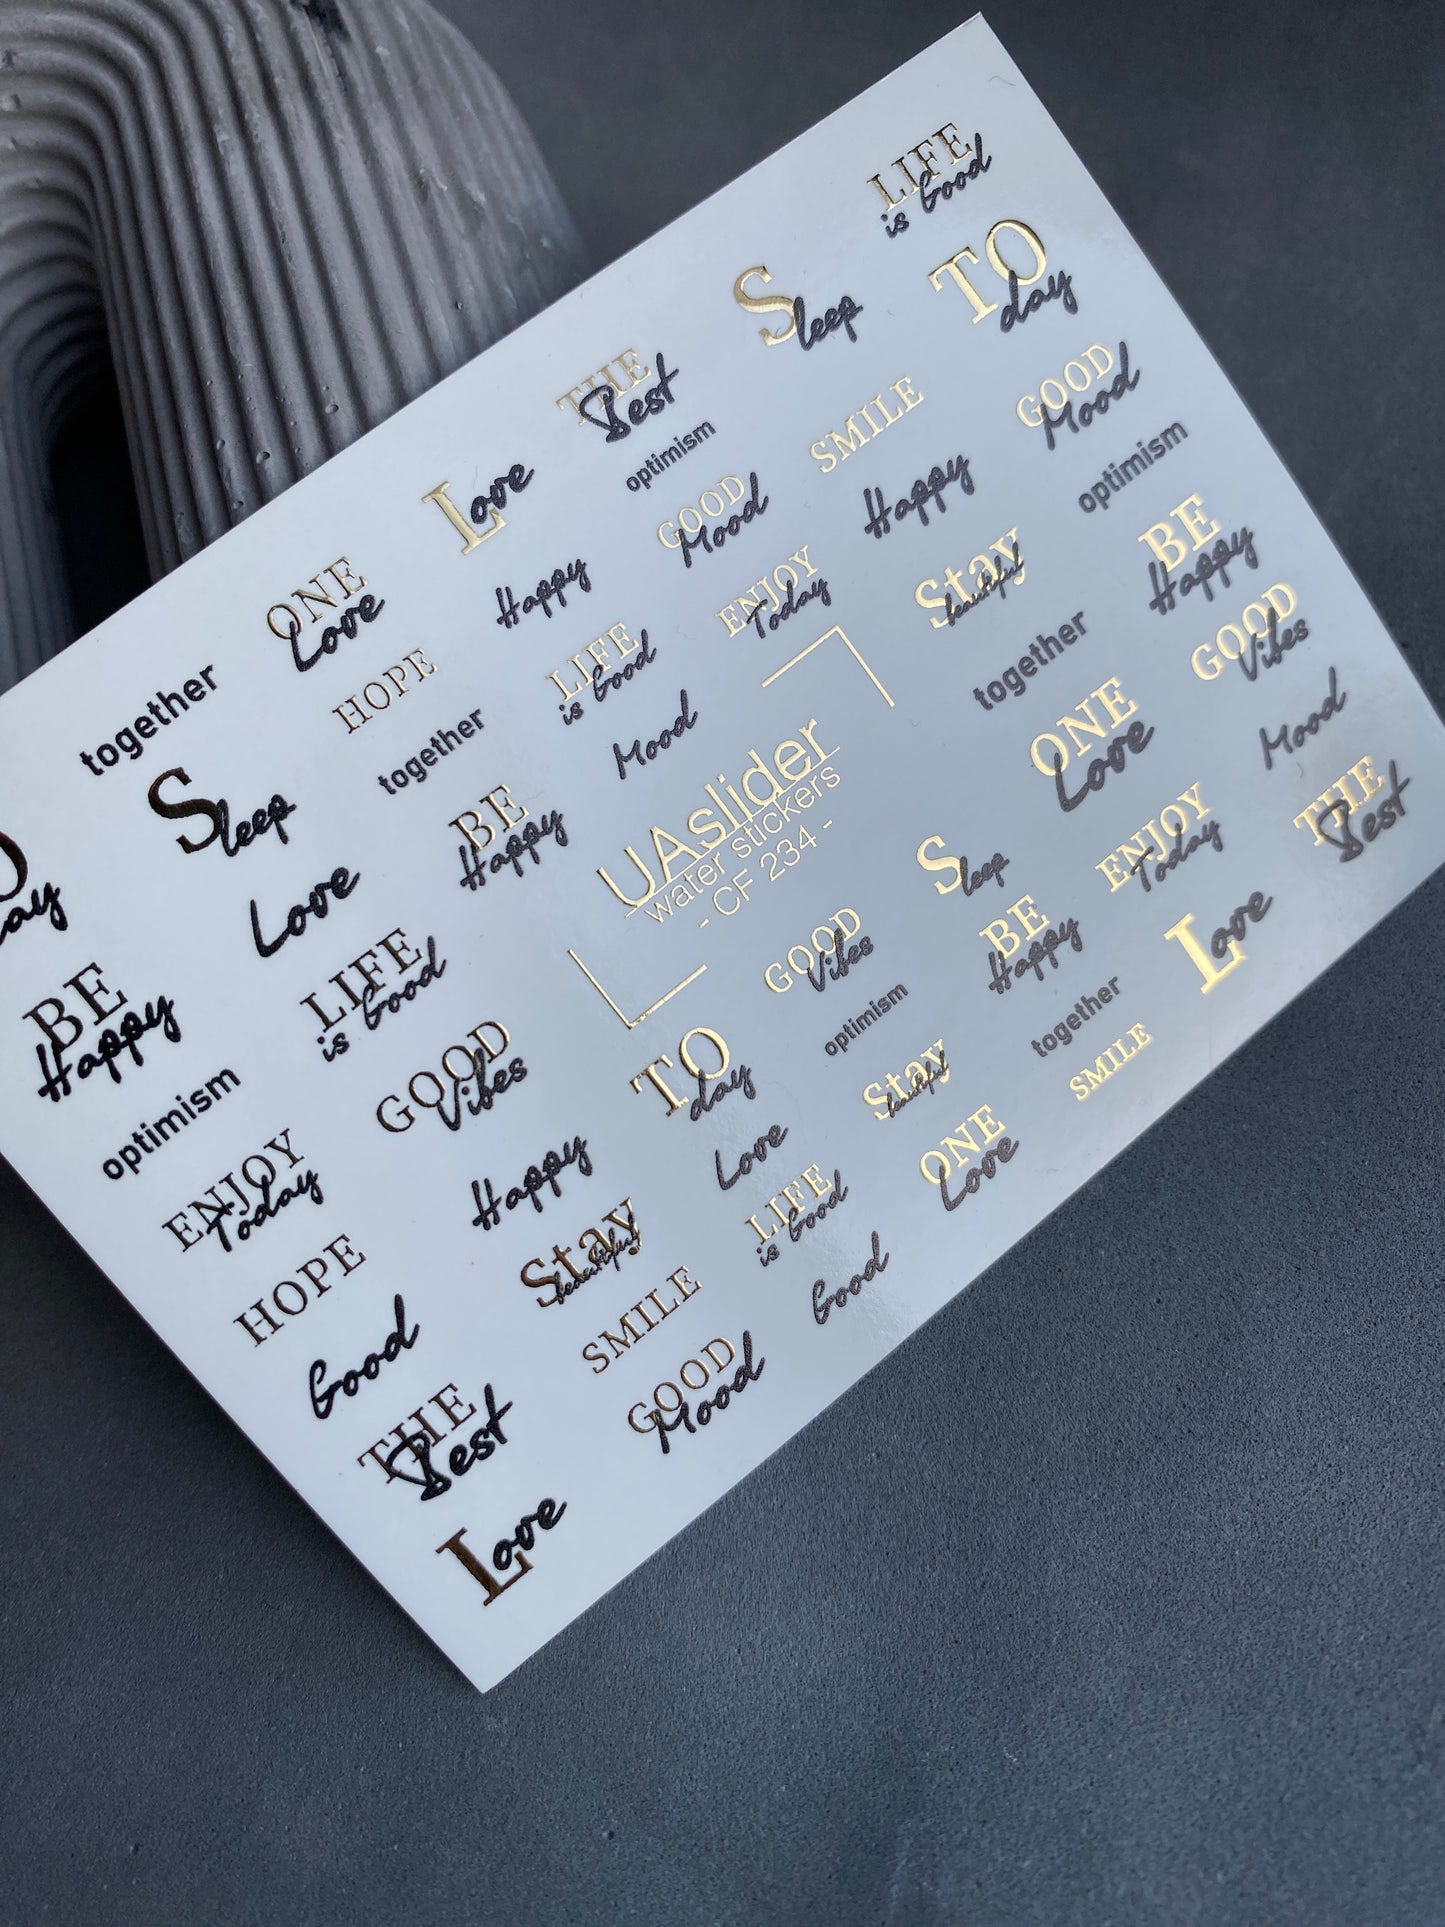 LIFE
is Good
Sleep
TO
day
THE
Best
optimism
SMILE
GOOD
Mood
Love
GOOD
Mood
Happy
optimism
ONE
Love
Happy
ENJOY
Today
Stay
beautiful
BE
Happy
together
HOPE
LIFE
is Good
together
GOOD
Vibes
together
Mood
ONE
Love
Mood
Sleep
BE
Happy
UAslider
water stickers
- CF 234 -
Sleep
ENJOY
Today
THE
Best
day
Love
LIFE
is Good
GOOD
Vibes
BE
Happy
Love
BE
Happy
GOOD
Vibes
TO
day
optimism
together
optimism
Stay
beautiful
SMILE
ENJOY
Today
Happy
Love
ONE
Love
HOPE
Stay
beautiful
LIFE
is Good
Good
SMILE
Good
THE
Best
GOOD
Mood
Love